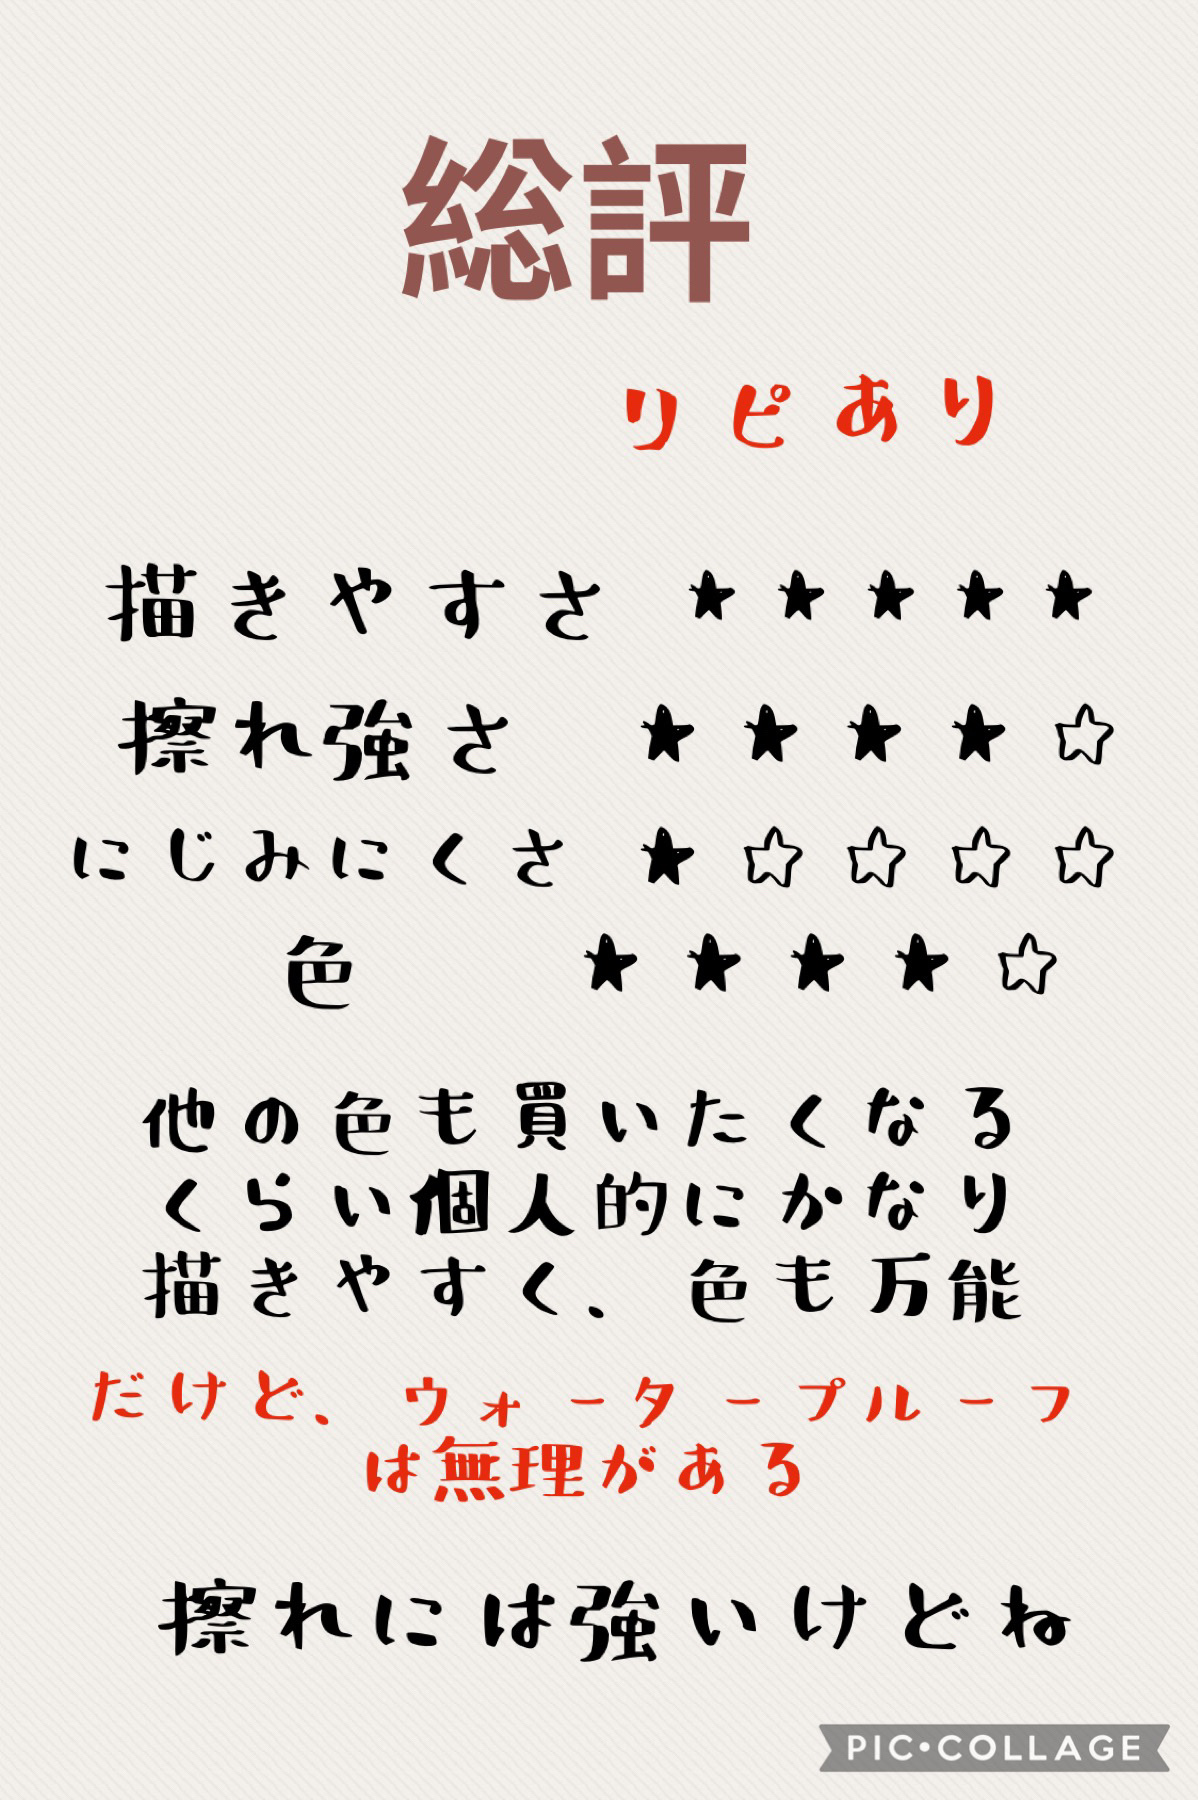 総評
リピあり
描きやすさ ★★★★★
擦れ強さ ★★★★☆
にじみにくさ ★☆☆☆☆
色 ★★★★☆
他の色も買いたくなる
くらい個人的にかなり
描きやすく、色も万能
だけど、ウォータープルーフ
は無理がある
擦れには強いけどね
PIC•COLLAGE